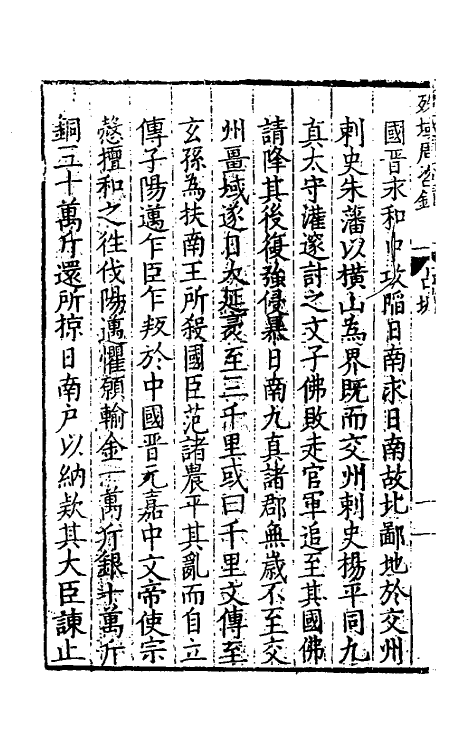 殊域周咨錄
占城
國晉永和中攻陷日南求日南故北鄙地於交州
刺史朱藩以橫山為界既而交州刺史楊平同九
真太守灌邃討之文子佛敗走官軍追至其國佛
請降其後復強侵暴日南九真諸郡無歲不至交
州疆域遂日大延袤至三千里或曰千里文傳至
玄孫為扶南王所殺國臣范諸農平其亂而自立
傳子陽邁乍臣乍叛於中國晉元嘉中文帝使宗
慤擅和之往伐陽邁懼願輸金一萬斤銀十萬斤
銅三十萬斤還所掠日南户以納欵其大臣諫止